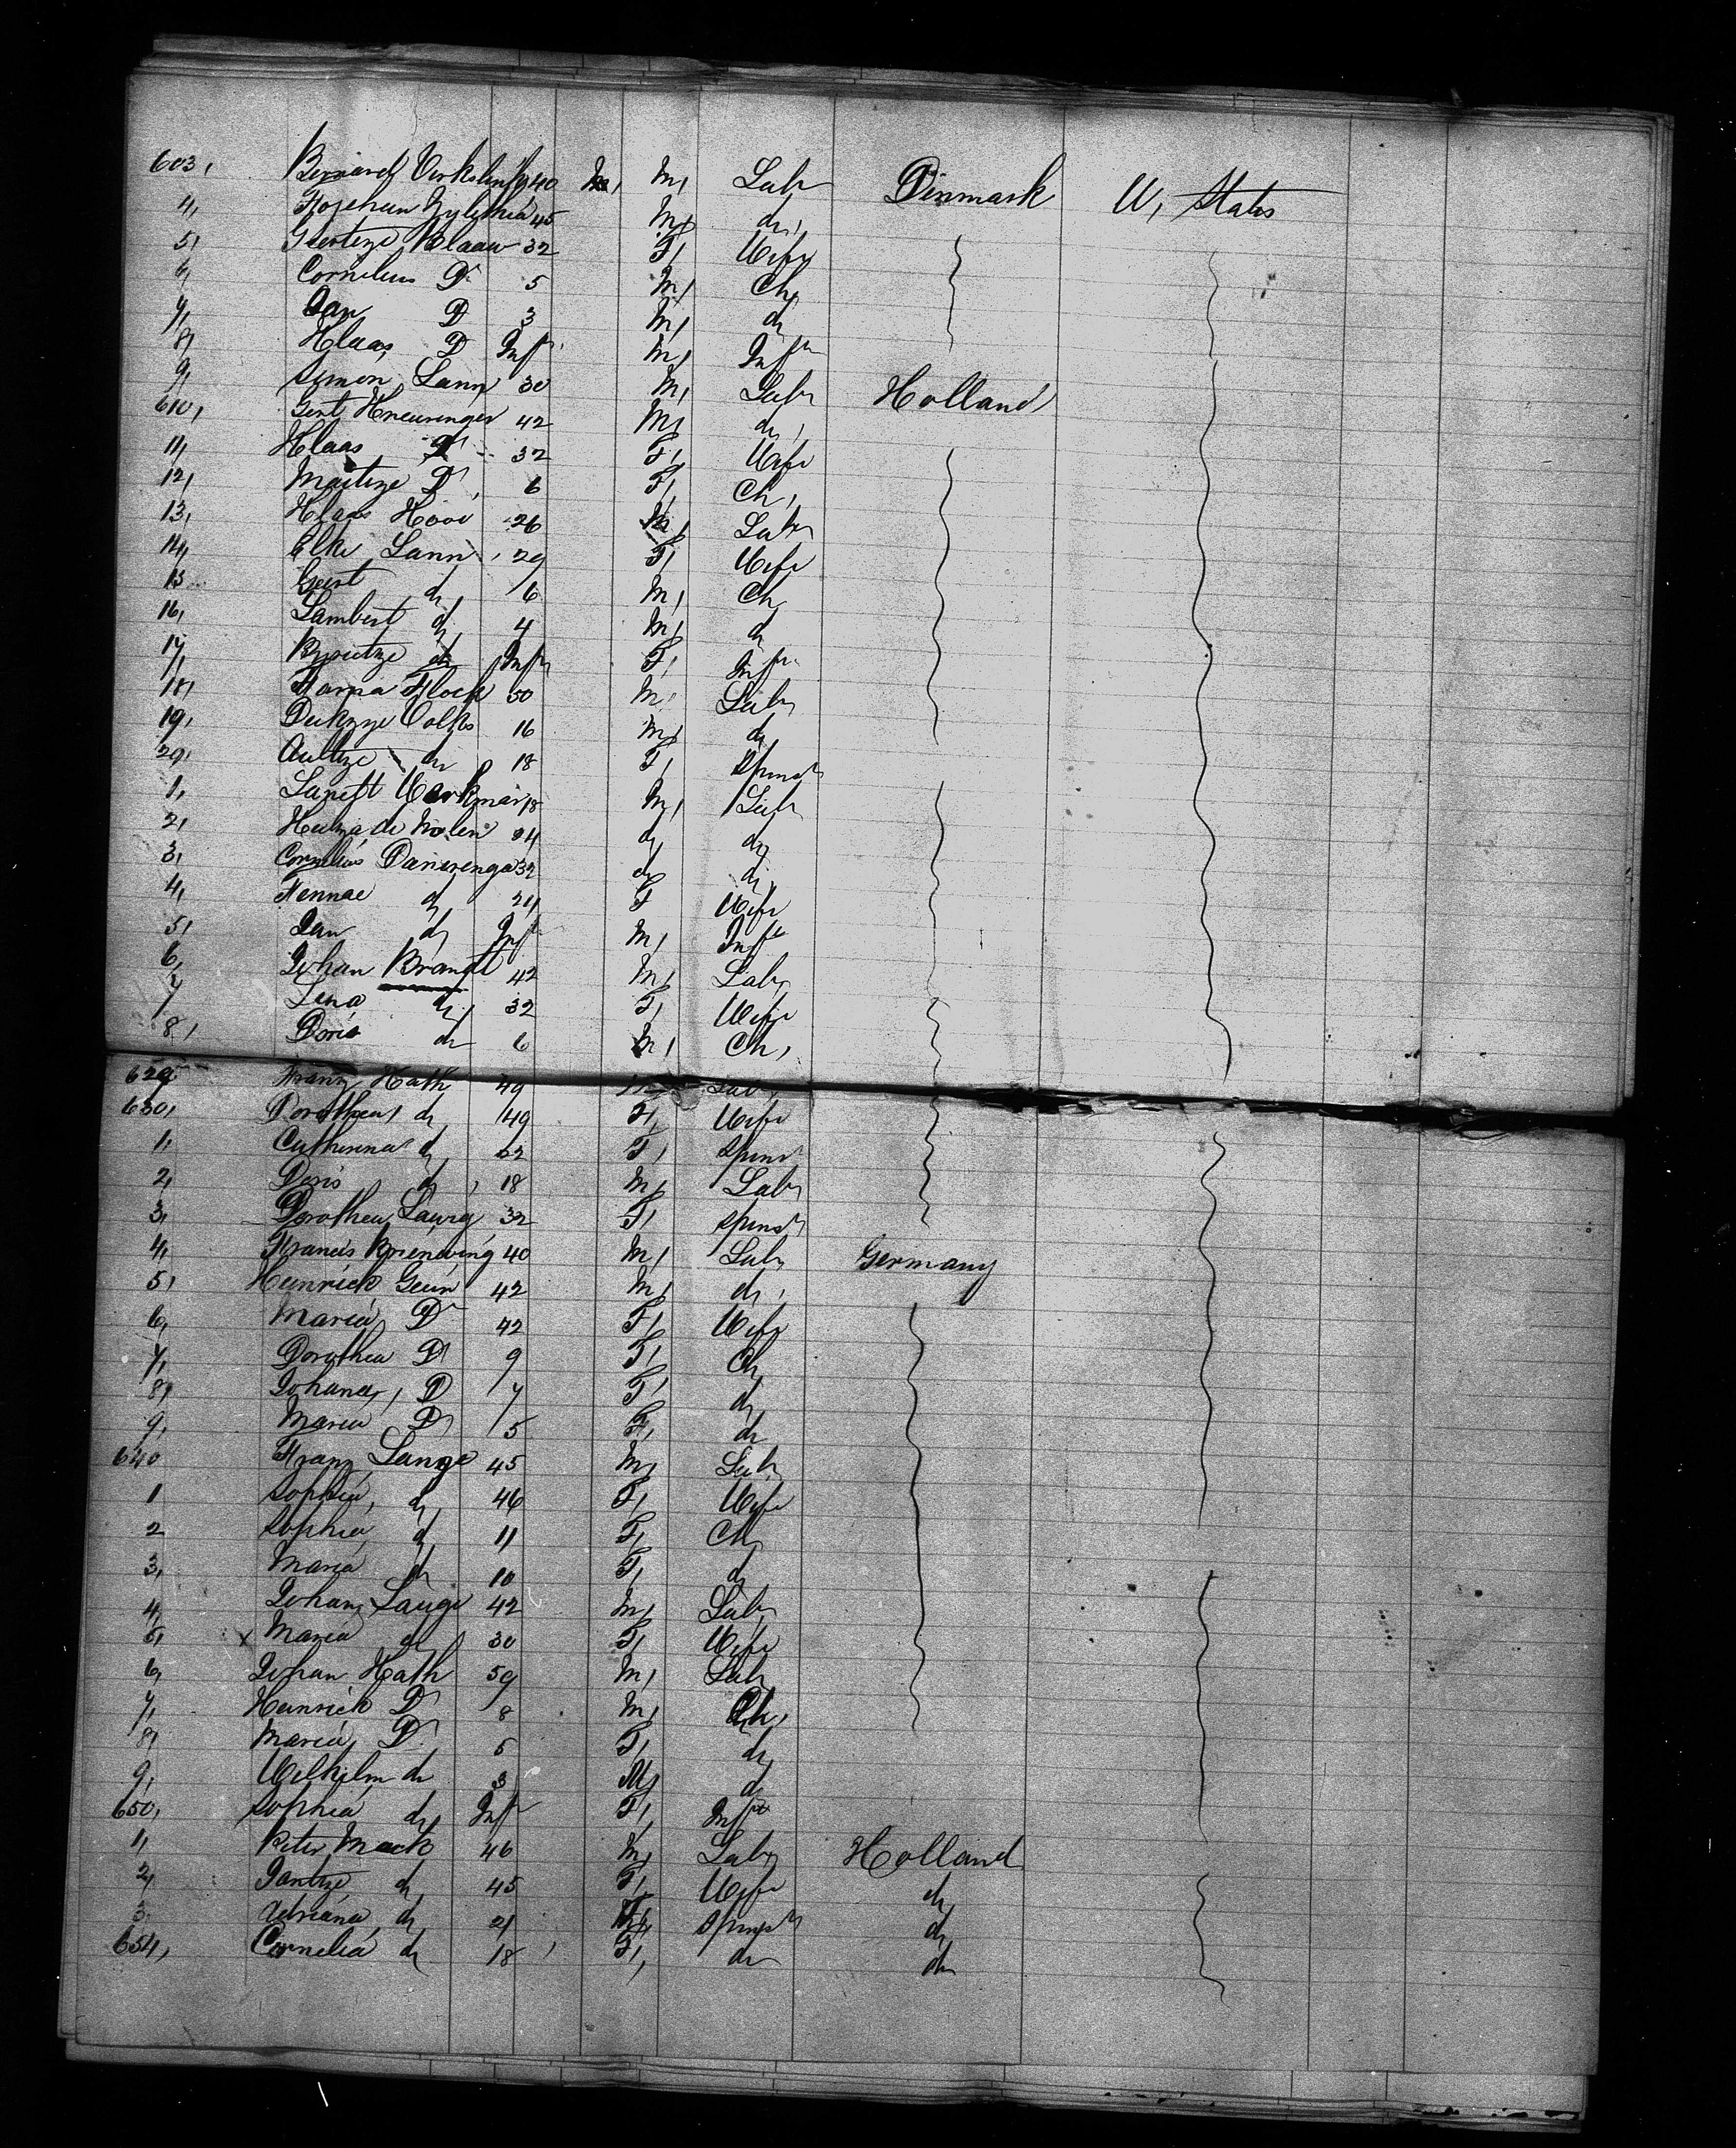 603, Bernard 40 M, M, Labr Denmark U, States
4, 45 M, do,
5, Gertize Klaaw 32 F, Wife
6, Cornelius Do 5 M, Ch,
7, Jan D 3 M, do
8, Klaas D Inft M, Inft
9, Simon Lann 30 M, Labr Holland
610, Gert Kneurenger 42 M, do,
11, Klaas Do 32 F, Wife
12, Maitize Do, 6 F, Ch,
13, Klaas Hooi 26 M, Labr
14, Elke Lann 29 F, Wife
15 Geert do 6 M, Ch,
16, Lambert do, 4 M, do
17, do Inft F, Inft
18, Flock 50 M, Labr
19, 16 M, do,
20, Aultize do 18 F, Spinstr
1, Workman 18 M, Labr
2, de Molen 24 do, do,
3, Cornelius Danerenga 32 do, do,
4, Hennae do, 24 F Wife
5, Jan do, Inft M, Inft
6, Johan Brandt 42 M, Labr
7, Lena do, 32 F, Wife
8, Doris do 6 M, Ch,
629 Franz Kath 49 Labr
630, Dorothea, do 49 F, Wife
1, Catherina do, 22 F, Spinst
2, Doris do, 18 M, Labr
3, Dorothea 32 F, Spinstr
4, Francis 40 M, Labr Germany
5, Heinrich Geun 42 M, do,
6, Maria Do 42 F, Wife
7, Dorothea D 9 F, Ch,
8, Johana, D 7 F, do,
9, Maria D 5 F, do
640 Franz Lange 45 M, Labr
1 Sophia, do, 46 F, Wife
2 Sophia do, 11 F, Ch,
3, Maria do 10 F, do
4, Johan Lauge 42 M, Labr
5, x Maria do 30 F, Wife
6, Johan Kath 59 M, Labr
7, Heinrich D 8 M, Ch,
8, Maria D 5 F, do,
9, Wilhilm do 3 M, do
650, Sophia do, Inft F, Inft
1, Peter Mack 46 M, Labr Holland
2, Jantize do, 45 F, Wife do,
3, Adriana do, 21 F, Spinstr do,
654, Cornelia do 18 F, do do